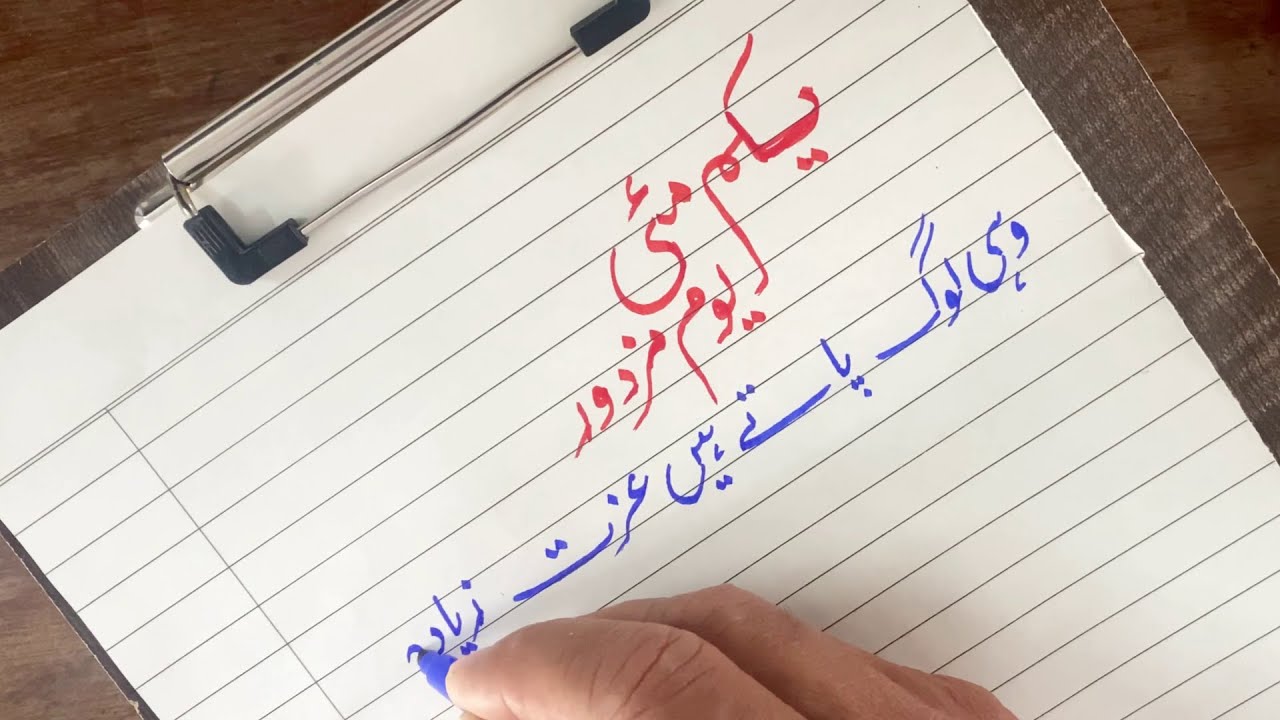 یکم مئی
یوم مزدور
وہی لوگ پاتے ہیں عزت زیادہ